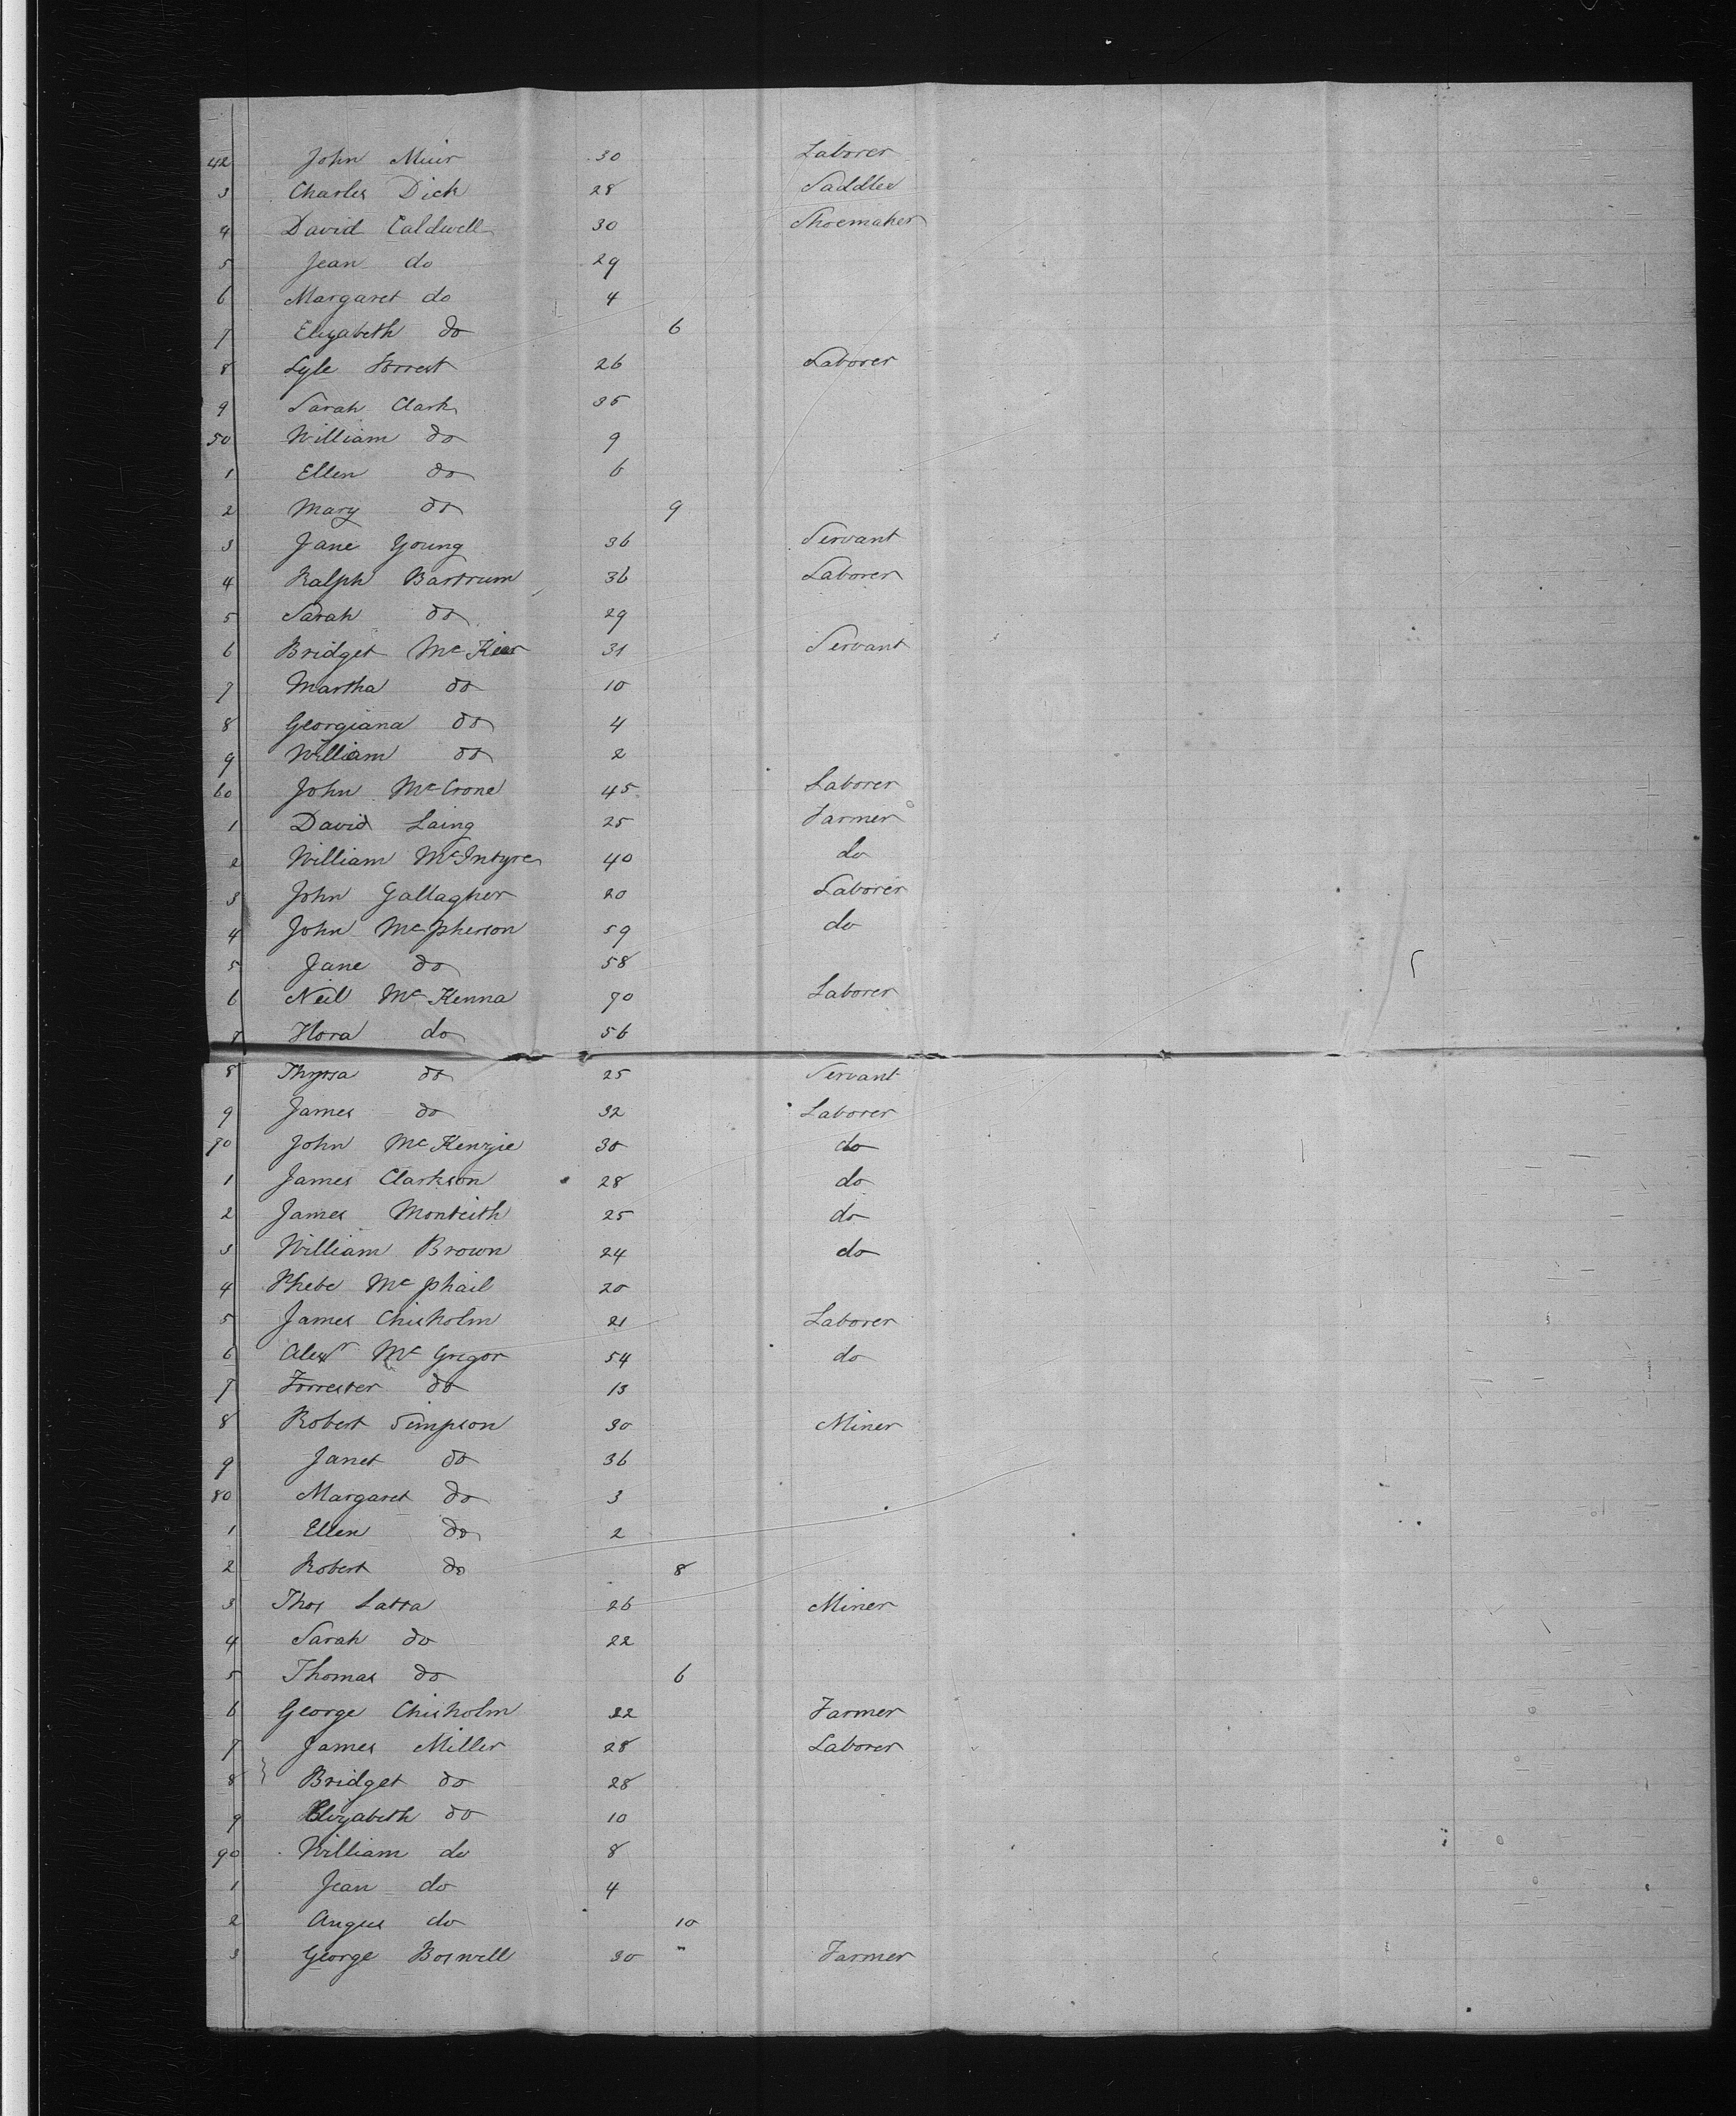 42 John Muir 30 Laborer
3 Charles Dick 28 Saddler
4 David Caldwell 30 Shoemaker
5 Jean do 29
6 Margaret do 4
7 Elizabeth do 6
8 Lyle Forrest 26 Laborer
9 Sarah Clark 35
50 William do 9
1 Ellen do 6
2 Mary do 9
3 Jane Young 36 Servant
4 Ralph Bartrum 36 Laborer
5 Sarah do 29
6 Bridget 31 Servant
7 Martha do 10
8 Georgiana do 4
9 William do 2
60 John McCrone 45 Laborer
1 David Laing 25 Farmer
2 William McIntyre 40 do
3 John Gallagher 20 Laborer
4 John McPherson 59 do
5 Jane do 58
6 Neil McKenna 70 Laborer
7 Flora do 56
8 Thyrsa do 25 Servant
9 James do 32 Laborer
70 John McKenzie 30 do
1 James Clarkson 28 do
2 James Monteith 25 do
3 William Brown 24 do
4 Phebe McPhail 20
5 James Chisholm 21 Laborer
6 Alexr McGregor 54 do
7 Forrester do 13
8 Robert Simpson 30 Miner
9 Janet do 36
80 Margaret do 3
1 Ellen do 2
2 Robert do 8
3 Thos Latta 26 Miner
4 Sarah do 22
5 Thomas do 6
6 George Chisholm 22 Farmer
7 James Miller 28 Laborer
8 Bridget do 28
9 Elizabeth do 10
90 William do 8
1 Jean do 4
2 Angus do 10
3 George Boswell 30 " Farmer